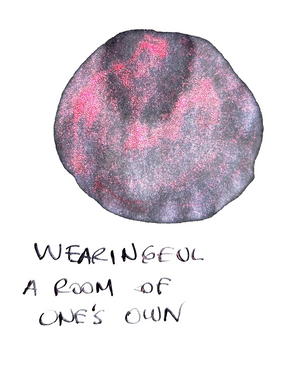 WEARINGEUL
A ROOM OF
ONE'S OWN